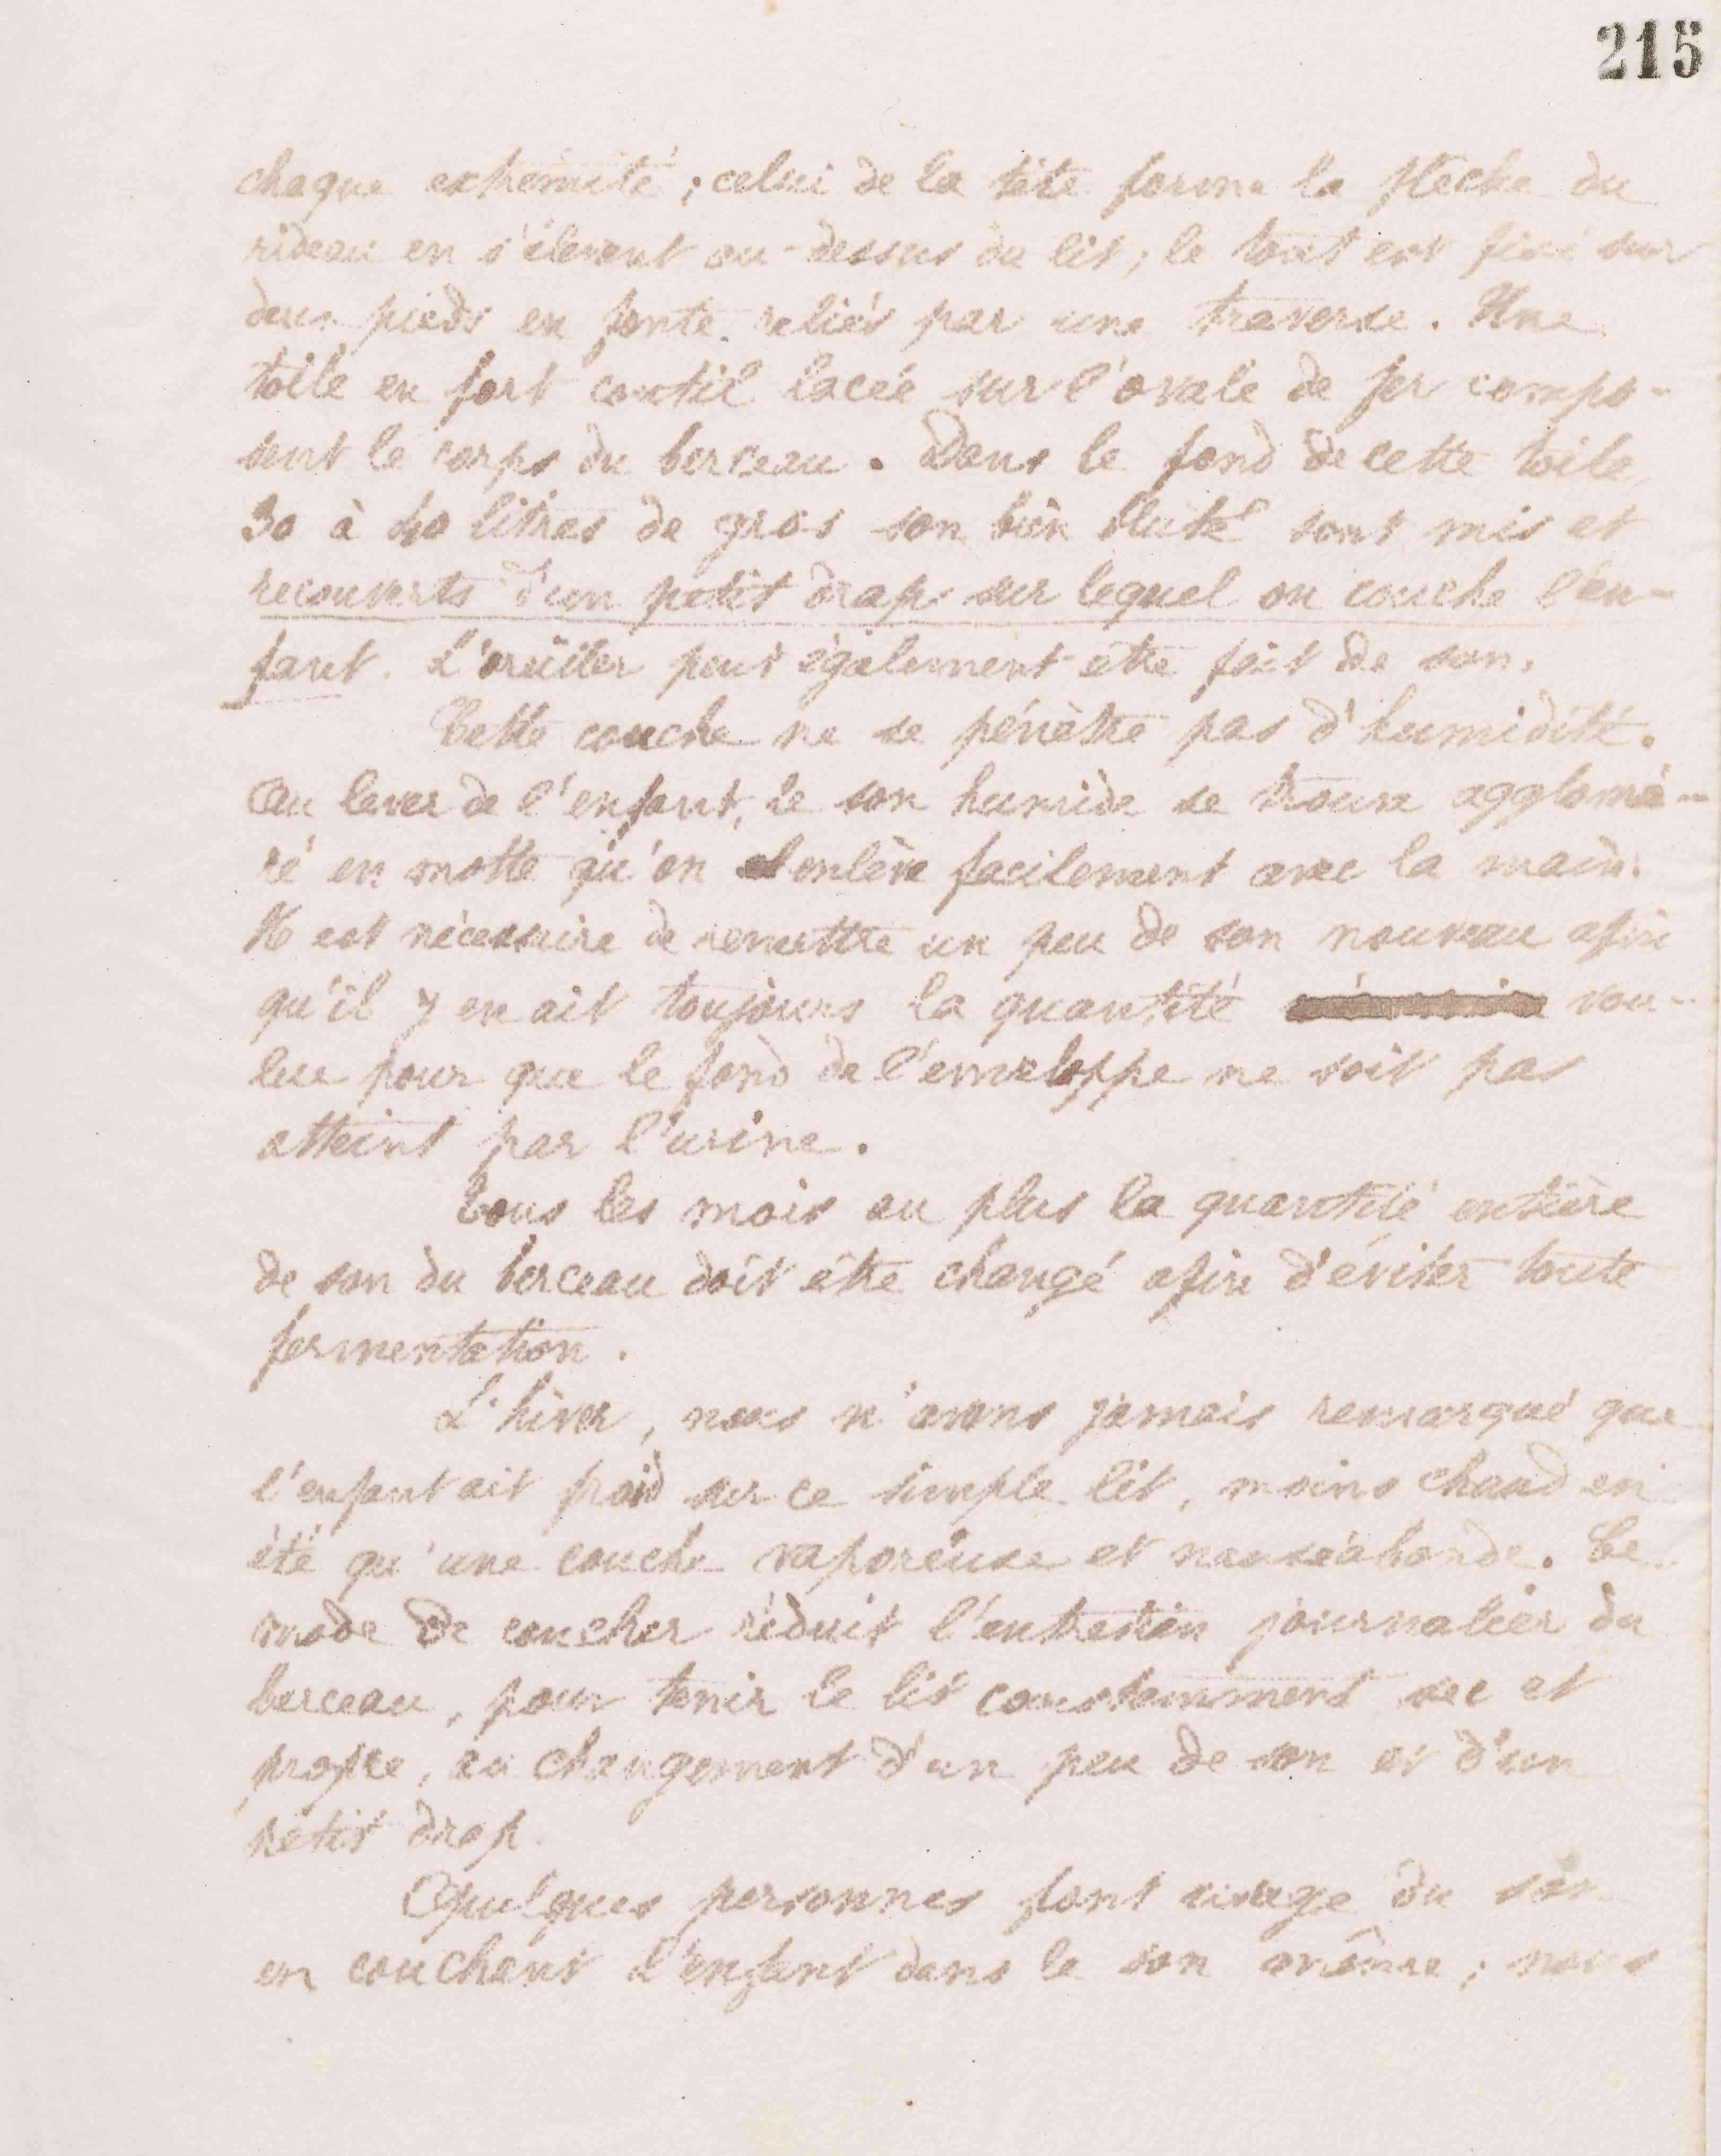 215
chaque extrémité ; celui de la tête forme la flèche du
rideau en s'élevant au-dessus du lit ; le tout est fixé sur
deux pieds en fonte reliés par une traverse. Une
toile en fort coutil lacée sur l'ovale de fer compo-
sent le corps du berceau. Dans le fond de cette toile,
30 à 40 litres de gros son bien bluté sont mis et
recouverts d'un petit drap sur lequel on couche l'en-
fant. L'oreiller peut également être fait de son.
Cette couche ne se pénètre pas d'humidité.
Au lever de l'enfant, le son humide se trouve agglomé-
ré en motte qu'on enlève facilement avec la main.
Il est nécessaire de remettre un peu de son nouveau afin
qu'il y en ait toujours la quantité vou-
lue pour que le fond de l'enveloppe ne soit pas
atteint par l'urine.
Tous les mois au plus la quantité entière
de son du berceau doit être changé afin d'éviter toute
fermentation.
L'hiver, nous n'avons jamais remarqué que
l'enfant ait froid sur ce simple lit, moins chaud en
été qu'une couche vaporeuse et nauséabonde. Ce
mode de coucher réduit l'entretien journalier du
berceau, pour tenir le lit constamment sec et
propre, au changement d'un peu de son et d'un
petit drap.
Quelques personnes font usage du son
en couchant l'enfant dans le son même ; nous